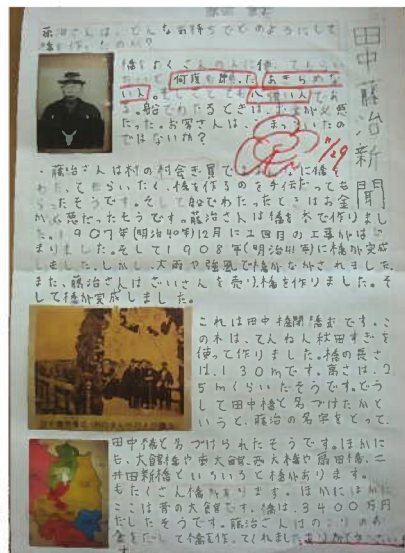 田中藤治新聞
藤治さんは、どんな気持ちでどのようにして
橋を作ったのか?
橋をよくさんの人に使ってもらい
たいと何度も願った。あきらめな
い人。
る。船でわたるときは、お金が必要
だった。お客さんは、まっていたの
ではないか?
11/29
藤治さんは村の村会ぎ員でよ
わたってもらいたく、橋を作るのを手伝だっても
らったそうです。そして船でわたったときはお金
が必要だったそうです。藤治さんは橋を木で作りまし
た。1907年(明治40年)12月に2回目の工事がはじ
まりました。そして1908年(明治41年)に橋が完成
しました。しかし、大雨や強風で橋がながされました。
また、藤治さんはざいさんを売り橋を作りました。そ
して橋が完成しました。
これは田中橋開橋式です。こ
の木は、てんねん秋田すぎを
使って作りました。橋の長さ
は、130mです。高さは、2.
5mくらいだそうです。どう
して田中橋と名づけたかと
いうと、藤治の名字をとって、
田中橋と名づけられたそうです。ほかに
も、大館橋や南大館、西大橋や扇田橋、二
井田新橋といろいろと橋があります。
もたくさん橋があります。ほかにはほかに
ここは昔の大館です。橋は、3400万円
だしたそうです。藤治さんはのこりのお
金をだして橋を作ってくれました。ありがとうござい